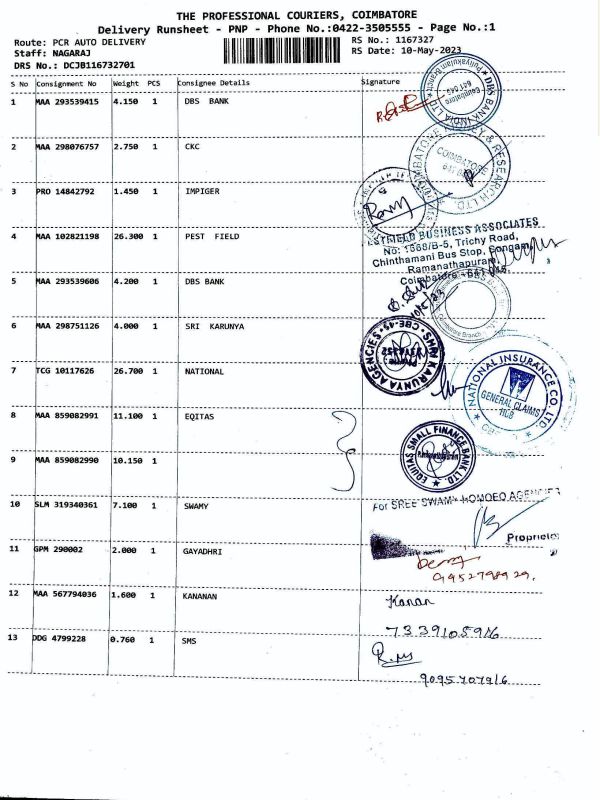 THE PROFESSIONAL COURIERS, COIMBATORE
Delivery Runsheet - PNP - Phone No.:0422-3505555 - Page No.:1
Route: PCR AUTO DELIVERY RS No.: 1167327
Staff: NAGARAJ RS Date: 10-May-2023
DRS No.: DCJB116732701
S No Consignment No Weight PCS Consignee Details Signature
1 MAA 293539415 4.150 1 DBS BANK
DBS BANK INDIA LTD
Coimbatore
641 045
2 MAA 298076757 2.750 1 CKC
& RESEARCH LTD.
COIMBATORE
3 PRO 14842792 1.450 1 IMPIGER
4 MAA 102821198 26.300 1 PEST FIELD
BUSINESS ASSOCIATES
No: 1568/B-5, Trichy Road,
Chinthamani Bus Stop, Songam,
Ramanathapuram,
Coimbatore - 641 045.
5 MAA 293539606 4.200 1 DBS BANK
10/5/23
6 MAA 298751126 4.000 1 SRI KARUNYA
SHRI KARUNYA AGENCIES
CBE-45
7 TCG 10117626 26.700 1 NATIONAL
NATIONAL INSURANCE CO. LTD.
GENERAL CLAIMS
HUB
8 MAA 859082991 11.100 1 EQITAS
EQUITAS SMALL FINANCE BANK LTD.
9 MAA 859082990 10.150 1
10 SLM 319340361 7.100 1 SWAMY
For SREE SWAMY HOMOEO AGENCIES
Proprietor
11 GPM 290002 2.000 1 GAYADHRI
9952798929.
12 MAA 567794036 1.600 1 KANANAN
Kanan
7339105916
13 DDG 4799228 0.760 1 SMS
9095707916